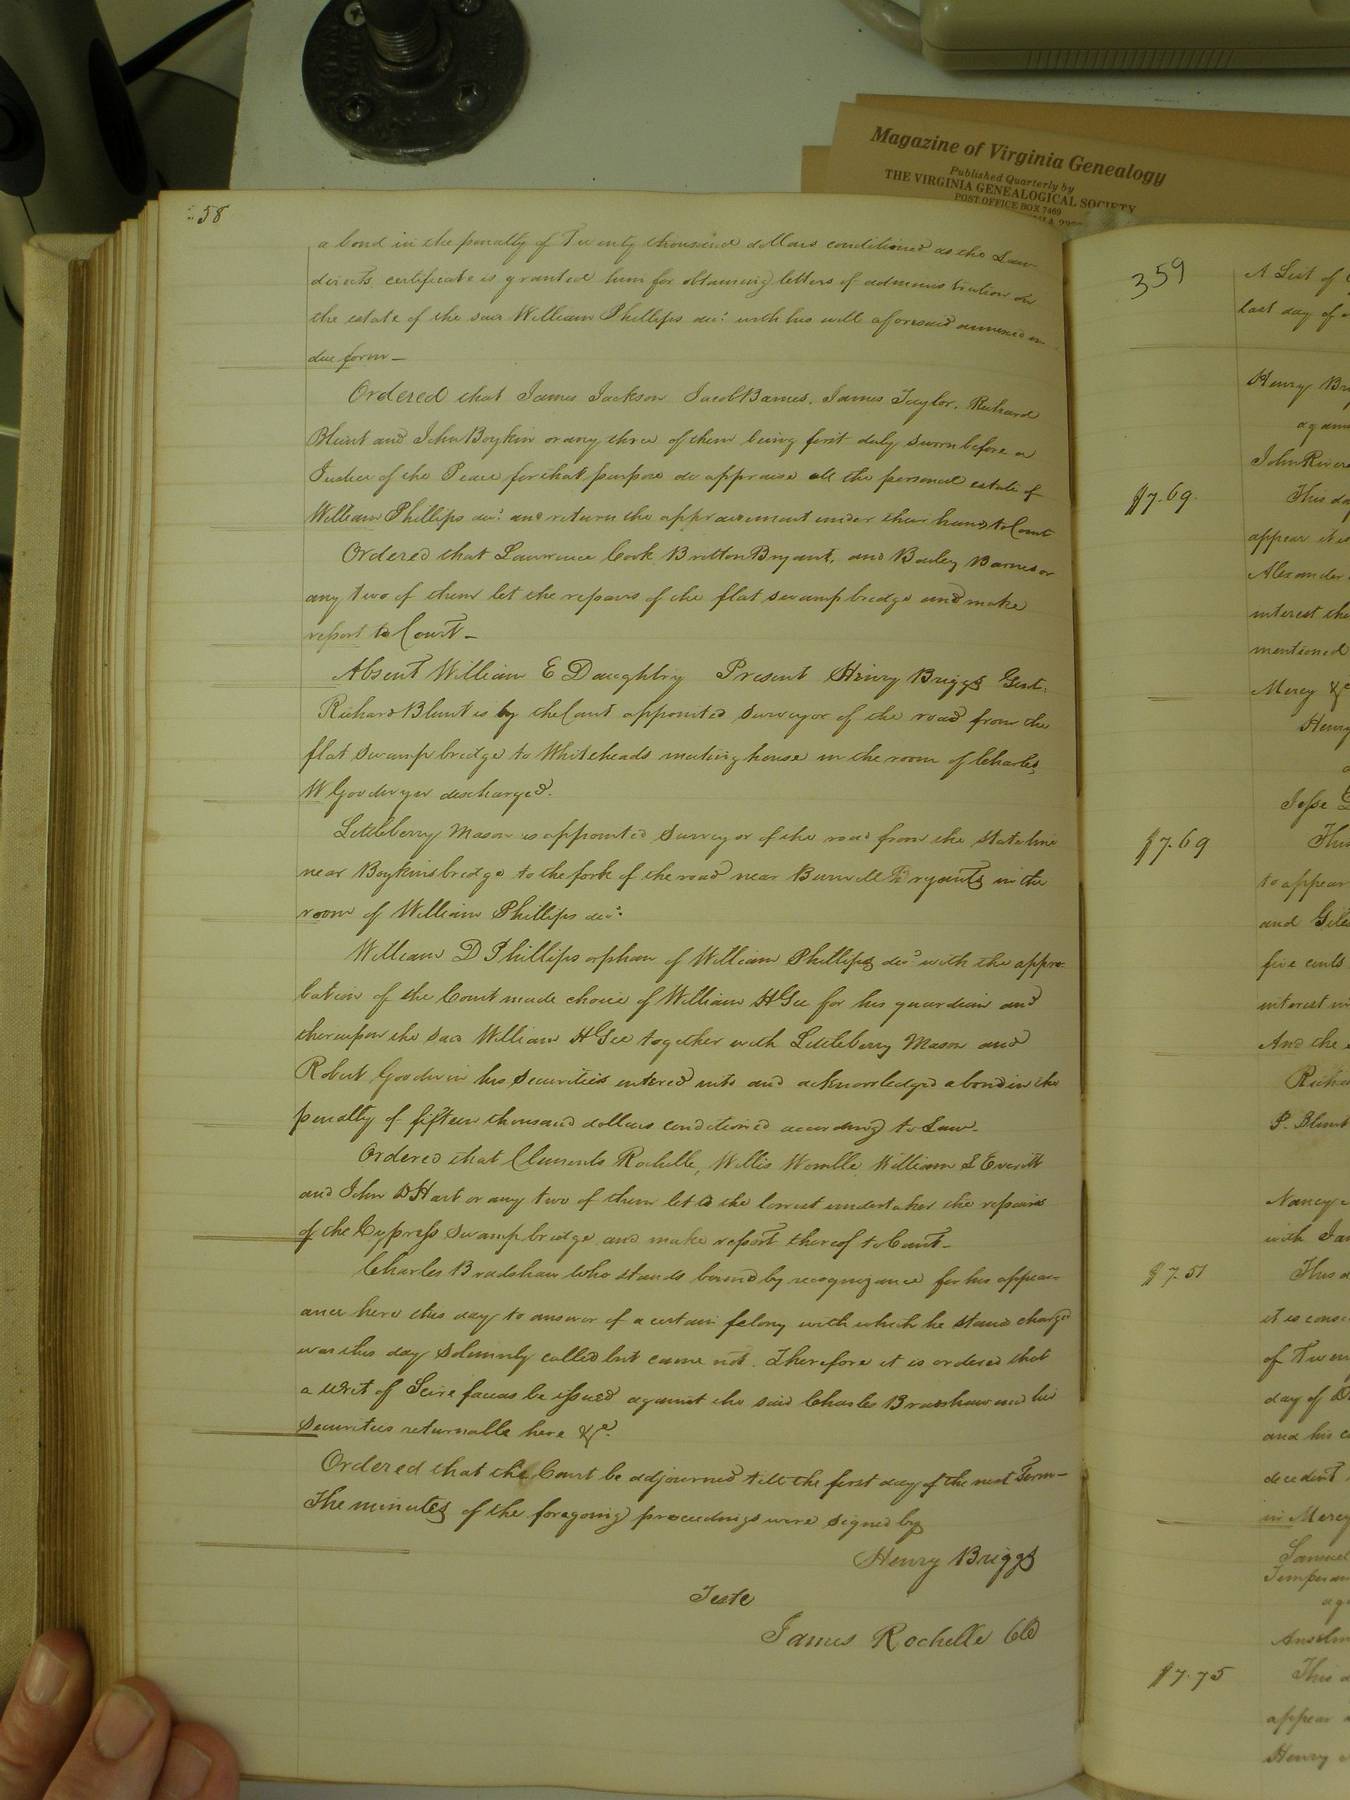 Magazine of Virginia Genealogy
Published Quarterly by
THE VIRGINIA GENEALOGICAL SOCIETY
POST OFFICE BOX 7469
58
a bond in the penalty of Twenty thousand dollars conditioned as the Law
directs, certificate is granted him for obtaining letters of administration on
the estate of the said William Phillips decd. with his will aforesaid annexed in
due form —
Ordered that James Jackson Jacob Barnes, James Taylor, Richard
Blunt and John Boykin or any three of them being first duly sworn before a
Justice of the Peace for that purpose do appraise all the personal estate of
William Phillips decd. and return the appraisement under their hands to Court
Ordered that Lawrence Cook Britton Bryant, and Bailey Barnes or
any two of them let the repairs of the flat swamp bridge and make
report to Court —
Absent William E Daughtry Present Henry Briggs Gent.
Richard Blunt is by the Court appointed surveyor of the road from the
flat swamp bridge to Whiteheads meeting house in the room of Charles
W Goodwyn discharged.
Littleberry Mason is appointed Surveyor of the road from the state line
near Boykins bridge to the fork of the road near Burwell Bryants in the
room of William Phillips decd.
William D Phillips orphan of William Phillips decd. with the appro-
bation of the Court made choice of William H Gee for his guardian and
thereupon the said William H Gee together with Littleberry Mason and
Robert Goodwin his securities entered into and acknowledged a bond in the
penalty of fifteen thousand dollars conditioned according to Law.
Ordered that Clements Rochelle, Willis Womble William J Everitt
and John D Hart or any two of them let to the lowest undertaker the repairs
of the Cypress Swamp bridge and make report thereof to Court —
Charles Bradshaw who stands bound by recognizance for his appear-
ance here this day to answer of a certain felony with which he stands charged
was this day solemnly called but came not. Therefore it is ordered that
a writ of Scire facias be issued against the said Charles Bradshaw and his
securities returnable here &c.
Ordered that the Court be adjourned till the first day of the next Term —
The minutes of the foregoing proceedings were signed by
Henry Briggs
Teste
James Rochelle Clk
359
A List of
last day of
Henry
John
$7.69.
This
appear it is
Alexander
interest the
mentioned
Mercy &c
Henry
Jesse
$7.69
This
to appear
and Giles
five cents
interest
And the
P. Blunt
Nancy
with
$7.51
This
it is
of Twen
day of D
and his
decedent
in Mercy
Samuel
$7.75
This
appear
Henry